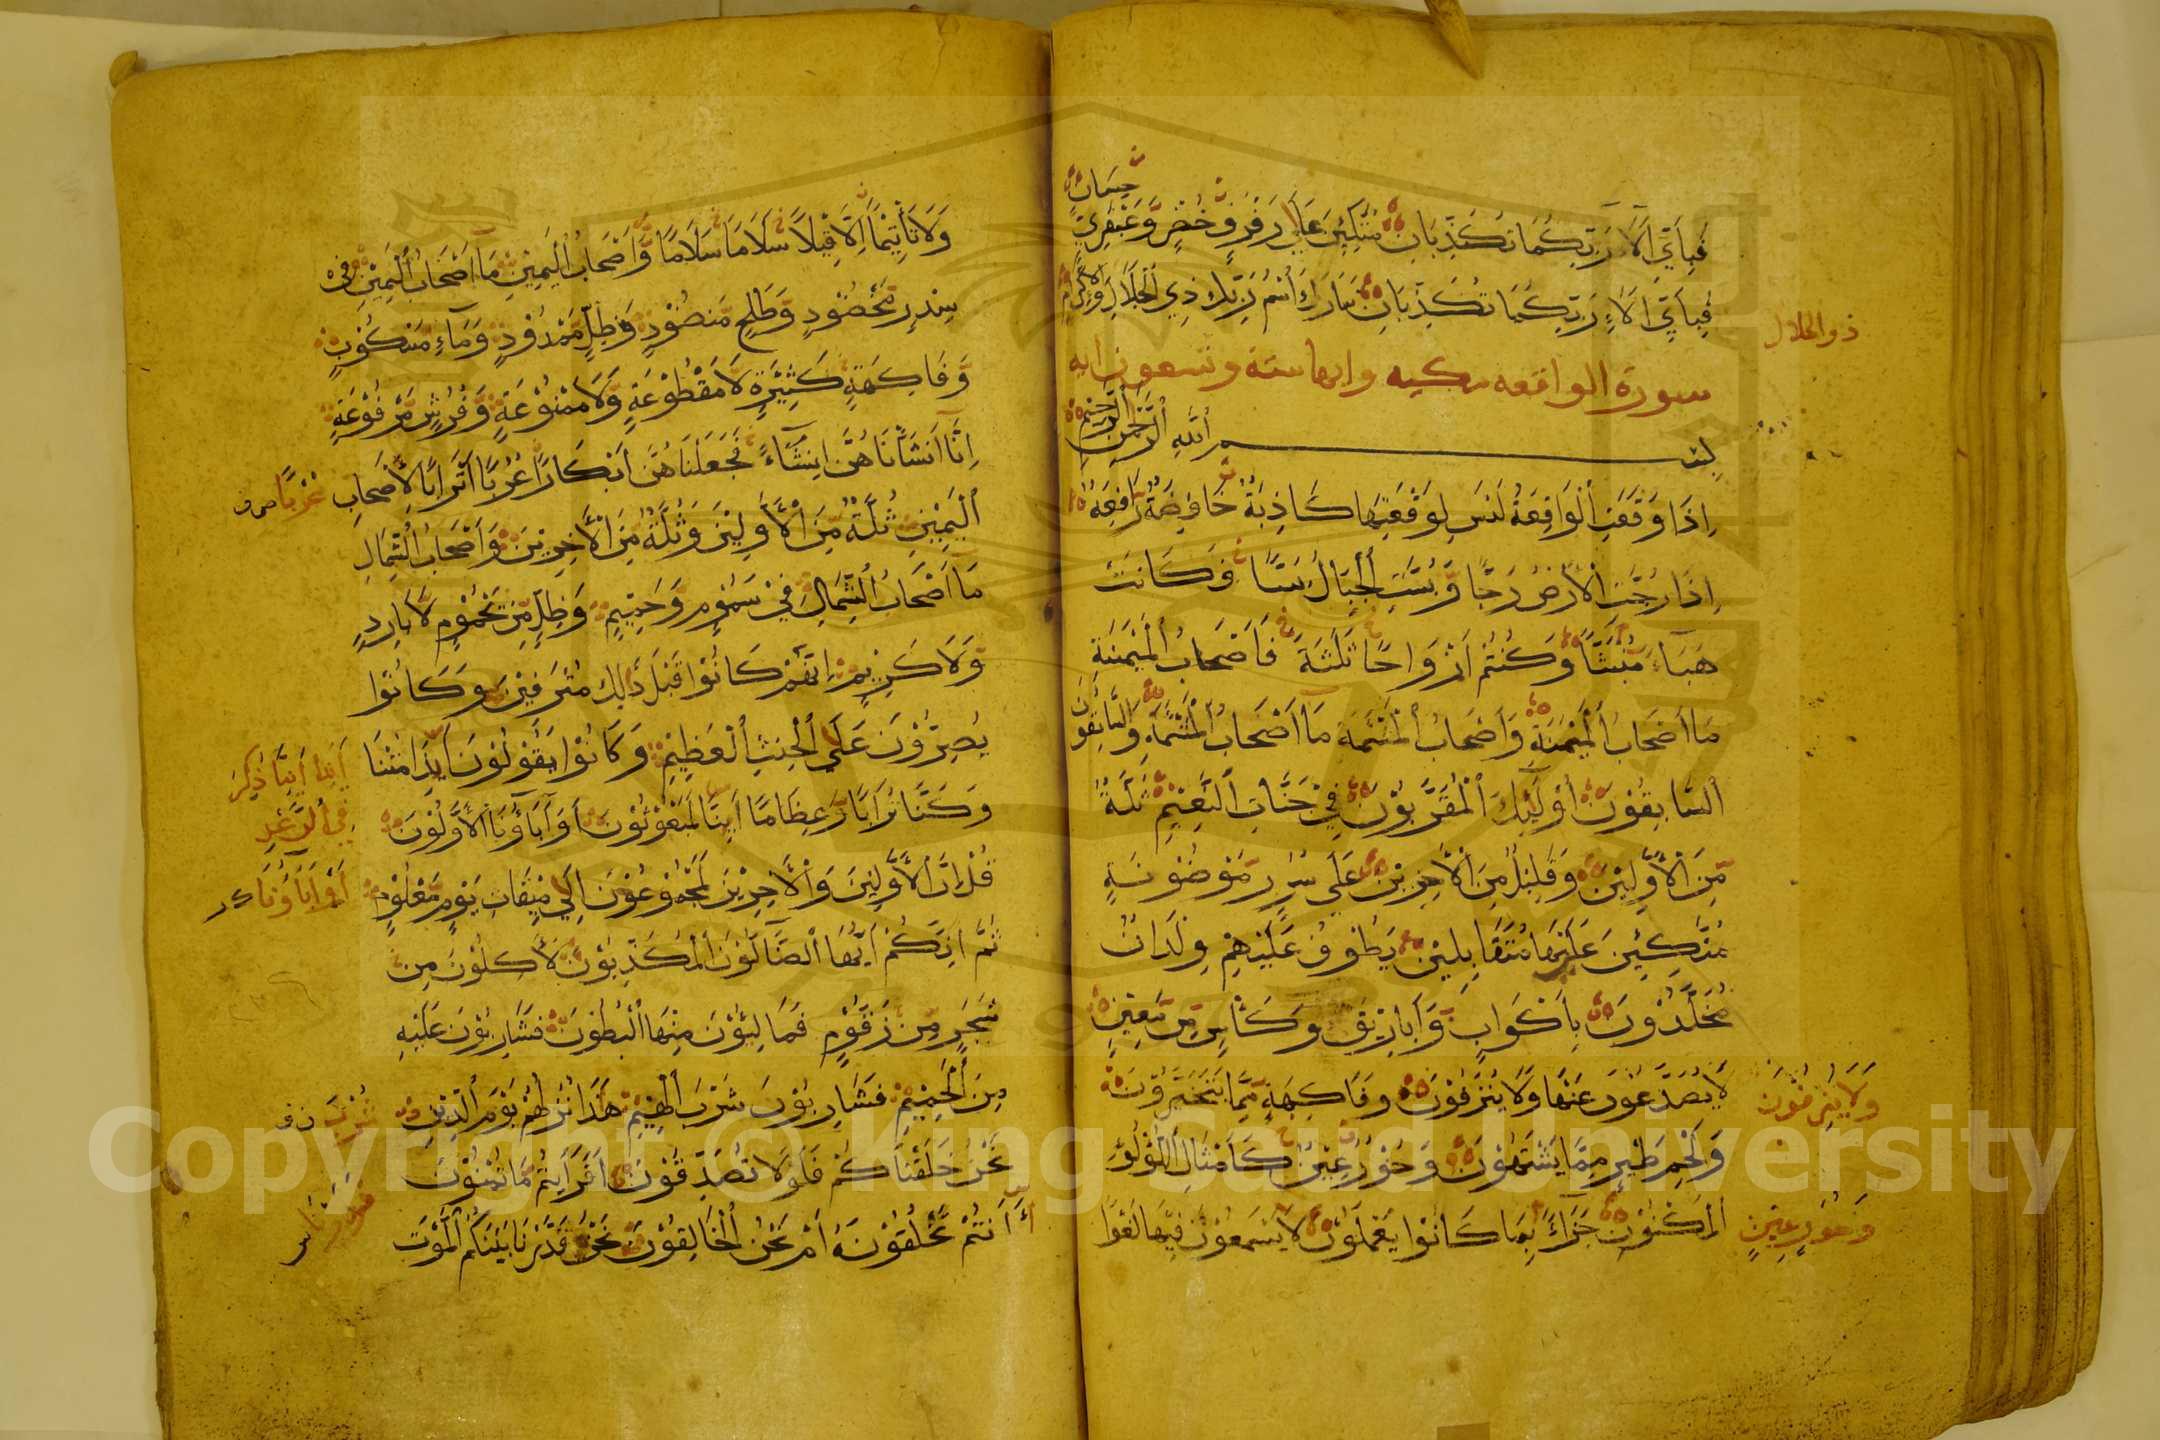 فَبِأَيِّ آلَاءِ رَبِّكُمَا تُكَذِّبَانِ مُتَّكِئِينَ عَلَى رَفْرَفٍ خُضْرٍ وَعَبْقَرِيٍّ حِسَانٍ
فَبِأَيِّ آلَاءِ رَبِّكُمَا تُكَذِّبَانِ تَبَارَكَ اسْمُ رَبِّكَ ذِي الْجَلَالِ وَالْإِكْرَامِ
ذو الجلال
سورة الواقعه مكيه وايها ستة وتسعون ايه
بِسْمِ اللَّهِ الرَّحْمَنِ الرَّحِيمِ
إِذَا وَقَعَتِ الْوَاقِعَةُ لَيْسَ لِوَقْعَتِهَا كَاذِبَةٌ خَافِضَةٌ رَافِعَةٌ
إِذَا رُجَّتِ الْأَرْضُ رَجًّا وَبُسَّتِ الْجِبَالُ بَسًّا فَكَانَتْ
هَبَاءً مُنْبَثًّا وَكُنْتُمْ أَزْوَاجًا ثَلَثَةً فَأَصْحَابُ الْمَيْمَنَةِ
مَا أَصْحَابُ الْمَيْمَنَةِ وَأَصْحَابُ الْمَشْئَمَةِ مَا أَصْحَابُ الْمَشْئَمَةِ وَالسَّابِقُونَ
السَّابِقُونَ أُولَئِكَ الْمُقَرَّبُونَ فِي جَنَّاتِ النَّعِيمِ ثُلَّةٌ
مِنَ الْأَوَّلِينَ وَقَلِيلٌ مِنَ الْآخِرِينَ عَلَى سُرُرٍ مَوْضُونَةٍ
مُتَّكِئِينَ عَلَيْهَا مُتَقَابِلِينَ يَطُوفُ عَلَيْهِمْ وِلْدَانٌ
مُخَلَّدُونَ بِأَكْوَابٍ وَأَبَارِيقَ وَكَأْسٍ مِنْ مَعِينٍ
لَا يُصَدَّعُونَ عَنْهَا وَلَا يُنْزَفُونَ وَفَاكِهَةٍ مِمَّا يَتَخَيَّرُونَ
وَلَا يُنْزِفُونَ
وَلَحْمِ طَيْرٍ مِمَّا يَشْتَهُونَ وَحُورٌ عِينٌ كَأَمْثَالِ اللُّؤْلُؤِ
الْمَكْنُونِ جَزَاءً بِمَا كَانُوا يَعْمَلُونَ لَا يَسْمَعُونَ فِيهَا لَغْوًا
وَحُورٍ عِينٍ
وَلَا تَأْثِيمًا إِلَّا قِيلًا سَلَامًا سَلَامًا وَأَصْحَابُ الْيَمِينِ مَا أَصْحَابُ الْيَمِينِ فِي
سِدْرٍ مَخْضُودٍ وَطَلْحٍ مَنْضُودٍ وَظِلٍّ مَمْدُودٍ وَمَاءٍ مَسْكُوبٍ
وَفَاكِهَةٍ كَثِيرَةٍ لَا مَقْطُوعَةٍ وَلَا مَمْنُوعَةٍ وَفُرُشٍ مَرْفُوعَةٍ
إِنَّا أَنْشَأْنَاهُنَّ إِنْشَاءً فَجَعَلْنَاهُنَّ أَبْكَارًا عُرُبًا أَتْرَابًا لِأَصْحَابِ
عُرْبًا
الْيَمِينِ ثُلَّةٌ مِنَ الْأَوَّلِينَ وَثُلَّةٌ مِنَ الْآخِرِينَ وَأَصْحَابُ الشِّمَالِ
مَا أَصْحَابُ الشِّمَالِ فِي سَمُومٍ وَحَمِيمٍ وَظِلٍّ مِنْ يَحْمُومٍ لَا بَارِدٍ
وَلَا كَرِيمٍ إِنَّهُمْ كَانُوا قَبْلَ ذَلِكَ مُتْرَفِينَ وَكَانُوا
يُصِرُّونَ عَلَى الْحِنْثِ الْعَظِيمِ وَكَانُوا يَقُولُونَ أَيِذَا مِتْنَا
أَئِذَا أَئِنَّا ذُكِرَ
وَكُنَّا تُرَابًا وَعِظَامًا أَئِنَّا لَمَبْعُوثُونَ أَوَآبَاؤُنَا الْأَوَّلُونَ
فِي الرَّعْدِ
قُلْ إِنَّ الْأَوَّلِينَ وَالْآخِرِينَ لَمَجْمُوعُونَ إِلَى مِيقَاتِ يَوْمٍ مَعْلُومٍ
أَوْ آبَاؤُنَا
ثُمَّ إِنَّكُمْ أَيُّهَا الضَّالُّونَ الْمُكَذِّبُونَ لَآكِلُونَ مِنْ
شَجَرٍ مِنْ زَقُّومٍ فَمَالِئُونَ مِنْهَا الْبُطُونَ فَشَارِبُونَ عَلَيْهِ
مِنَ الْحَمِيمِ فَشَارِبُونَ شَرْبَ الْهِيمِ هَذَا نُزُلُهُمْ يَوْمَ الدِّينِ
شُرْبَ
نَحْنُ خَلَقْنَاكُمْ فَلَوْلَا تُصَدِّقُونَ أَفَرَأَيْتُمْ مَا تُمْنُونَ
أَأَنْتُمْ تَخْلُقُونَهُ أَمْ نَحْنُ الْخَالِقُونَ نَحْنُ قَدَّرْنَا بَيْنَكُمُ الْمَوْتَ
Copyright © King Saud University